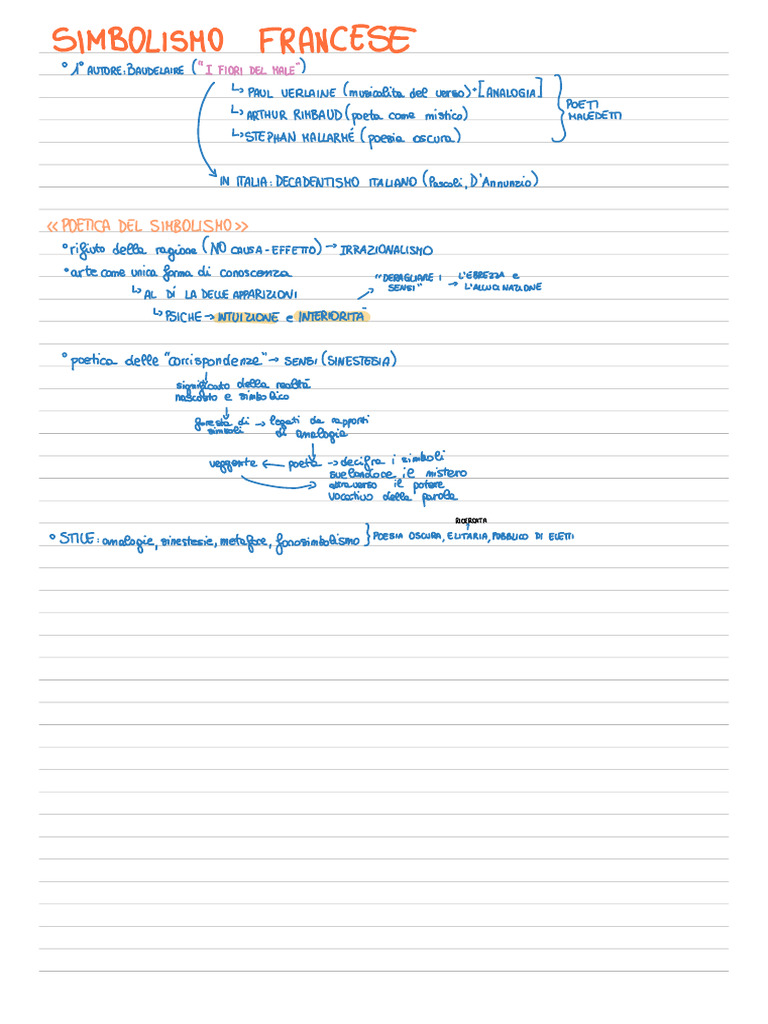 SIMBOLISMO FRANCESE
° 1° AUTORE: BAUDELAIRE ("I FIORI DEL MALE")
↳ PAUL VERLAINE (musicalità del verso) + [ANALOGIA]
↳ ARTHUR RIMBAUD (poeta come mistico)
↳ STEPHAN MALLARMÉ (poesia oscura)
POETI
MALEDETTI
IN ITALIA: DECADENTISMO ITALIANO (Pascoli, D'Annunzio)
<<POETICA DEL SIMBOLISMO>>
° rifiuto della ragione (NO CAUSA-EFFETTO) → IRRAZIONALISMO
° arte come unica forma di conoscenza
↳ AL DÌ LA DELLE APPARIZIONI
↳ PSICHE → INTUIZIONE e INTERIORITÀ
"DERAGLIARE I
SENSI" → L'EBREZZA e
L'ALLUCINAZIONE
° poetica delle "corrispondenze" → SENSI (SINESTESIA)
significato della realtà
nascosto e simbolico
foresta di
simboli → legati da rapporti
di analogia
veggente ← poeta → decifra i simboli
svelandoce il mistero
attraverso il potere
vocativo della parola
° STILE: analogie, sinestesie, metafore, fonosimbolismo } POESIA OSCURA, ELITARIA, PUBBLICO DI ELETTI
RICERCATA